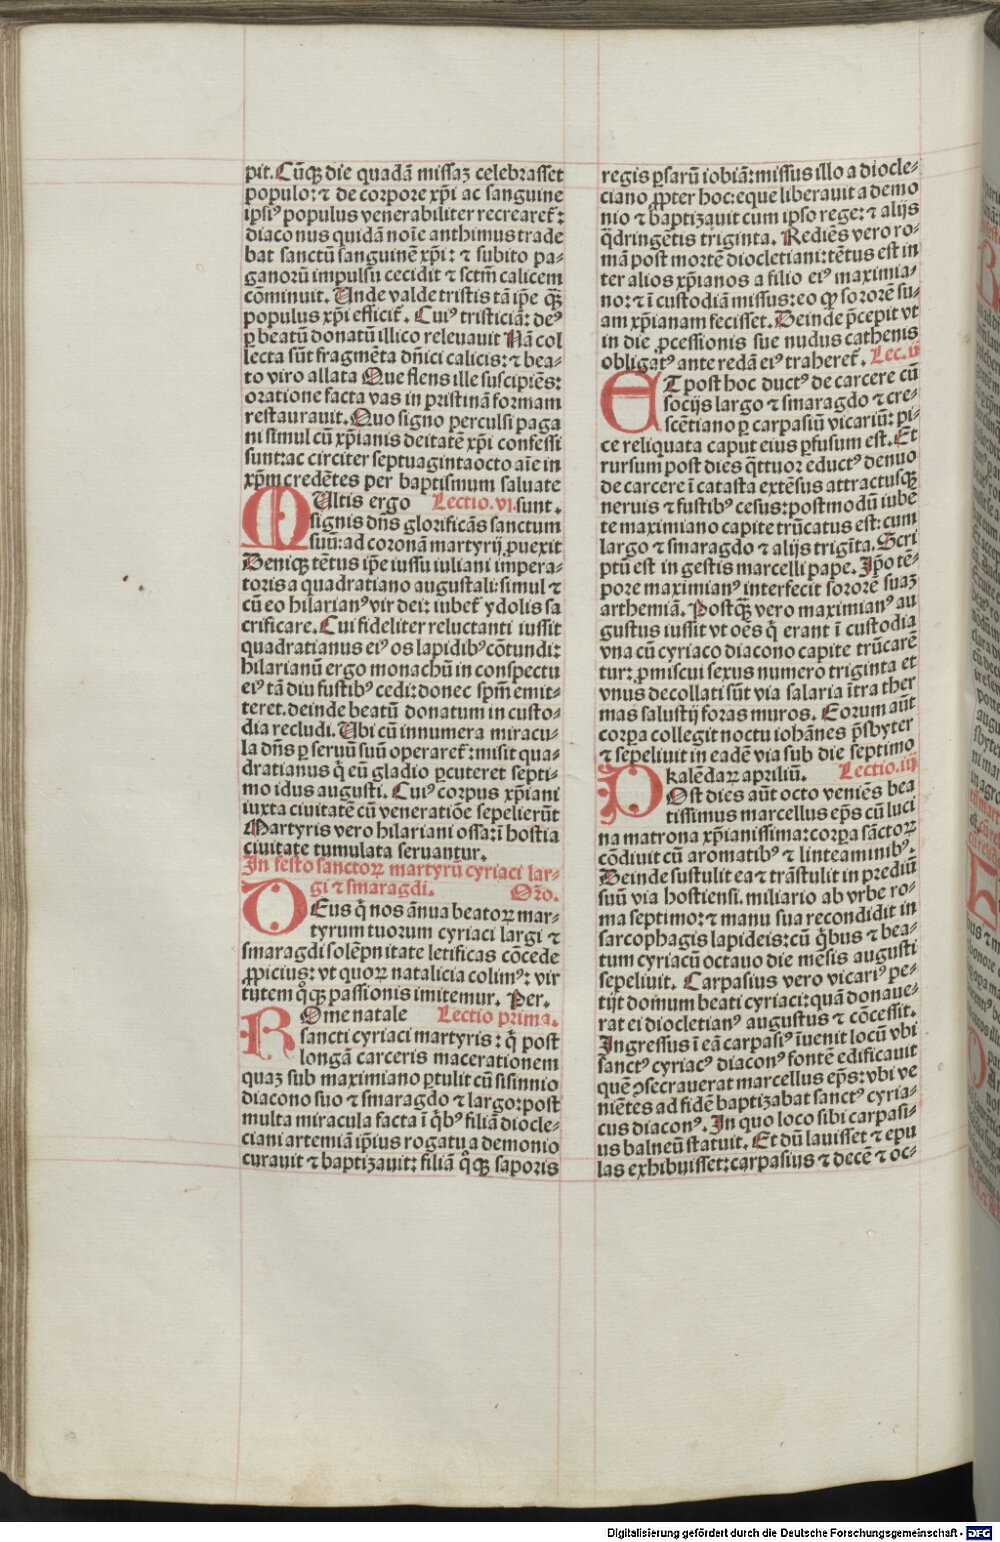 pit. Cūqꝫ die quadā missaꝫ celebrasset
populo: ⁊ de corpore xp̄i ac sanguine
ipsiꝰ populus venerabiliter recrearet᷑:
diaconus quidā noīe anthimus trade
bat sanctū sanguinē xp̄i: ⁊ subito pa-
ganorū impulsu cecidit ⁊ sctm̄ calicem
cōminuit. Unde valde tristis tā ip̄e qꝫ̄
populus xp̄i efficit᷑. Cuiꝰ tristiciā: deꝰ
ꝑ beatū donatū illico releuauit Nā col
lecta sūt fragmēta dn̄ici calicis: ⁊ bea-
to viro allata Que flens ille suscipiēs:
oratione facta vas in pristinā formam
restaurauit. Quo signo perculsi paga
ni simul cū xp̄ianis deitatē xp̄i confessi
sunt: ac circiter septuaginta octo aīe in
xp̄m credētes per baptismum saluate
MUltis ergo Lectio.vi. sunt.
signis dn̄s glorificās sanctum
suū: ad coronā martyrij ꝓuexit
Deniqꝫ tētus ip̄e iussu iuliani impera-
toris a quadratiano augustali: simul ⁊
cū eo hilarianꝰ vir dei: iubet᷑ ydolis sa
crificare. Cui fideliter reluctanti iussit
quadratianus eiꝰ os lapidibꝰ cōtundi:
hilarianū ergo monachū in conspectu
eiꝰ tā diu fustibꝰ cedi: donec sp̄m emit-
teret. deinde beatū donatum in custo-
dia recludi. Ubi cū innumera miracu-
la dn̄s ꝑ seruū suū operaret᷑: misit qua-
dratianus q̄ eū gladio ꝑcuteret septi-
mo idus augusti. Cuiꝰ corpus xp̄iani
iuxta ciuitatē cū veneratiōe sepelierūt
Martyris vero hilariani ossa: ī hostia
ciuitate tumulata seruantur.
In festo sanctoꝝ martyrū cyriaci lar-
gi ⁊ smaragdi. Oro.
DEus q̄ nos ānua beatoꝝ mar-
tyrum tuorum cyriaci largi ⁊
smaragdi solēpnitate letificas cōcede
ꝓpicius: vt quoꝝ natalicia colimꝰ: vir
tutem qͦqꝫ passionis imitemur. Per.
ROme natale Lectio prima.
sancti cyriaci martyris: q̄ post
longā carceris macerationem
quaꝫ sub maximiano ꝑtulit cū sisinnio
diacono suo ⁊ smaragdo ⁊ largo: post
multa miracula facta ī q̄bꝰ filiā diocle-
ciani artemiā ip̄ius rogatu a demonio
curauit ⁊ baptizauit: filiā qͦqꝫ saporis
regis ꝑsarū iobiā: missus illo a diocle-
ciano ꝓpter hoc: eque liberauit a demo
nio ⁊ baptizauit cum ipso rege: ⁊ alijs
q̄dringētis triginta. Rediēs vero ro-
mā post mortē diocletiani: tētus est in
ter alios xp̄ianos a filio eiꝰ maximia-
no: ⁊ ī custodiā missus: eo ꝙ sororē su-
am xp̄ianam fecisset. Deinde p̄cepit vt
in die ꝓcessionis sue nudus cathenis
obligatꝰ ante redā eiꝰ traheret᷑. Lec.ij
ET post hoc ductꝰ de carcere cū
socijs largo ⁊ smaragdo ⁊ cre-
scētiano ꝑ carpasiū vicariū: pi-
ce reliquata caput eius ꝑfusum est. Et
rursum post dies q̄ttuor eductꝰ denuo
de carcere ī catasta extēsus attractusqꝫ
neruis ⁊ fustibꝰ cesus: postmodū iubē
te maximiano capite trūcatus est: cum
largo ⁊ smaragdo ⁊ alijs trigīta. Scri
ptū est in gestis marcelli pape. Ip̄o tē-
pore maximianꝰ interfecit sororē suaꝫ
arthemiā. Postqꝫ̄ vero maximianꝰ au
gustus iussit vt oēs q̄ erant ī custodia
vna cū cyriaco diacono capite trūcarē
tur: ꝓmiscui sexus numero triginta et
vnus decollati sūt via salaria ītra ther
mas salustij foras muros. Eorum aūt
corpa collegit noctu iohānes p̄sbyter
⁊ sepeliuit in eadē via sub die septimo
kalēdaꝝ apriliū. Lectio.iij
POst dies aūt octo veniēs bea
tissimus marcellus ep̄s cū luci
na matrona xp̄ianissima: corpa sāctoꝝ
cōdiuit cū aromatibꝰ ⁊ linteaminibꝰ.
Deinde sustulit ea ⁊ trāstulit in prediū
suū via hostiensi. miliario ab vrbe ro-
ma septimo: ⁊ manu sua recondidit in
sarcophagis lapideis: cū q̄bus ⁊ bea-
tum cyriacū octauo die mēsis augusti
sepeliuit. Carpasius vero vicariꝰ pe-
tijt domum beati cyriaci: quā donaue-
rat ei diocletianꝰ augustus ⁊ cōcessit.
Ingressus ī eā carpasiꝰ īuenit locū vbi
sanctꝰ cyriacꝰ diaconꝰ fontē edificauit
quē ꝯsecrauerat marcellus ep̄s: vbi ve
niētes ad fidē baptizabat sanctꝰ cyria-
cus diaconꝰ. In quo loco sibi carpasi-
us balneū statuit. Et dū lauisset ⁊ epu
las exhibuisset: carpasius ⁊ decē ⁊ oc-
Digitalisierung gefördert durch die Deutsche Forschungsgemeinschaft - DFG